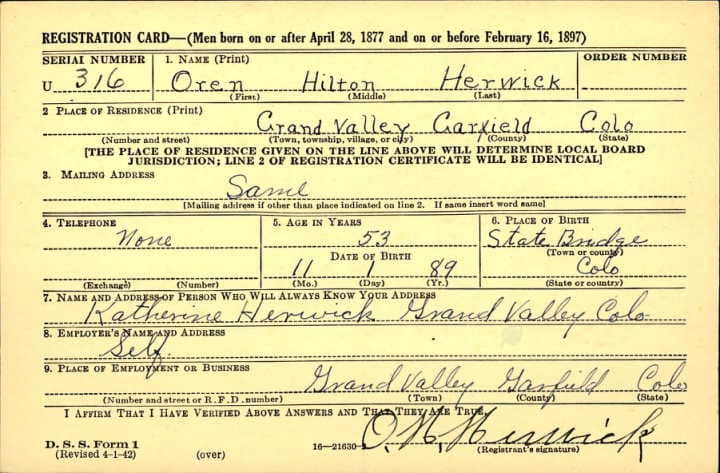 REGISTRATION CARD—(Men born on or after April 28, 1877 and on or before February 16, 1897)
SERIAL NUMBER 1. NAME (Print) ORDER NUMBER
U 316 Oren Hilton Herwick
(First) (Middle) (Last)
2 PLACE OF RESIDENCE (Print)
Grand Valley Garfield Colo
(Number and street) (Town, township, village, or city) (County) (State)
[THE PLACE OF RESIDENCE GIVEN ON THE LINE ABOVE WILL DETERMINE LOCAL BOARD
JURISDICTION; LINE 2 OF REGISTRATION CERTIFICATE WILL BE IDENTICAL]
3. MAILING ADDRESS
Same
[Mailing address if other than place indicated on line 2. If same insert word same]
4. TELEPHONE 5. AGE IN YEARS 6. PLACE OF BIRTH
None 53 State Bridge
DATE OF BIRTH (Town or county)
11 1 89 Colo
(Exchange) (Number) (Mo.) (Day) (Yr.) (State or country)
7. NAME AND ADDRESS OF PERSON WHO WILL ALWAYS KNOW YOUR ADDRESS
Katherine Herwick Grand Valley Colo
8. EMPLOYER'S NAME AND ADDRESS
Self.
9. PLACE OF EMPLOYMENT OR BUSINESS
Grand Valley Garfield Colo
(Number and street or R.F.D. number) (Town) (County) (State)
I AFFIRM THAT I HAVE VERIFIED ABOVE ANSWERS AND THAT THEY ARE TRUE.
O. H. Herwick
D. S. S. Form 1 16—21630-2 (Registrant's signature)
(Revised 4-1-42) (over)